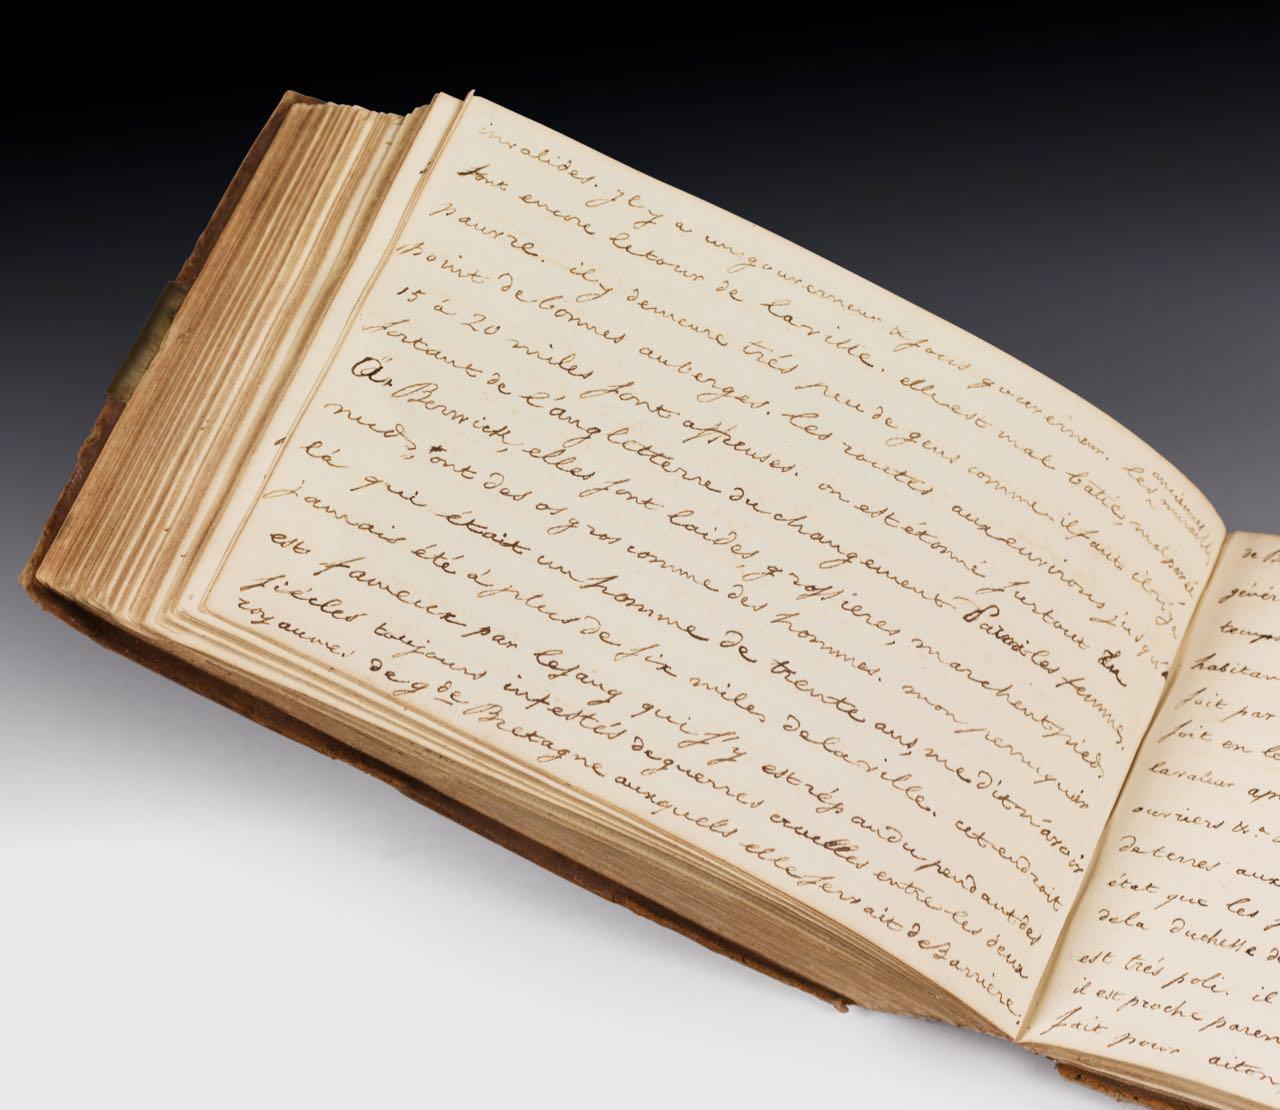 invalides. Il y a un gouverneur & sous gouverneur. les anciennes murailles
font encore letour de laville. elle est mal batie, malpavé
pauvre. il y demeure très peu de gens comme il faut. il n'y a
point de bonnes auberges. les routtes aux environs jusqu'à
15 à 20 miles sont affreuses. on est étonné, surtout En
sortant de l'angletterre du changement Parmi les femmes
à Berwick, elles sont laides, grossieres, marchent pieds
nuds, ont des os gros comme des hommes. mon perruquier
là qui était un homme de trente ans, me dit n'avoir
jamais été à plus de six miles delaville. cet endroit
est fameux par lesang qui s'y est répandu pendant des
siécles toujours infestés deguerres cruelles entre les deux
royaumes de g de Bretagne auxquels elle servait de Barrière.
de
génér
temp
habitan
soit par
soit en
lavaleur
ouvriers &.a
deterres aux
état que les
dela duchesse de
est très poli. il
il est proche paren
fait pour